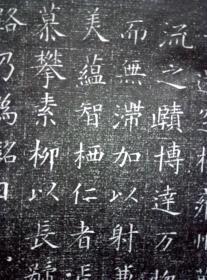 流之賾博達万
而無滯加以射
美蘊智栖仁者
慕攀素柳以長
路乃爲銘曰